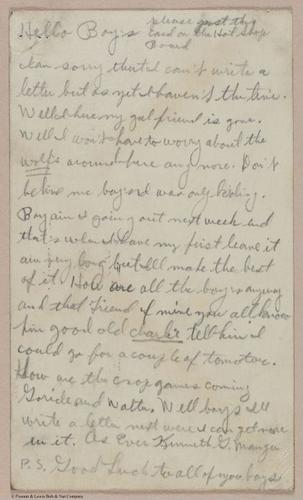 Hello Boys
please post this
Card on the Hail Shop
Board
I am sorry that I can't write a
letter but as yet I haven't the time.
Well I have my gal friend is gone.
Well I won't have to worry about the
wolfs around here any more. Don't
believe me boys I was only kidding.
Boy am I going out next week and
that's when I have my first leave it
ain't very long but I'll make the best
of it. How are all the boys anyway
and that friend of mine you all know
him good old charlie tell him I
could go for a couple of tomatoe.
How are the crap games coming
and Walter. Well boys I'll
write a letter next were I can get more
in it. As Ever Kenneth G.
P.S. Good Luck to all of you boys
© Pioneer &